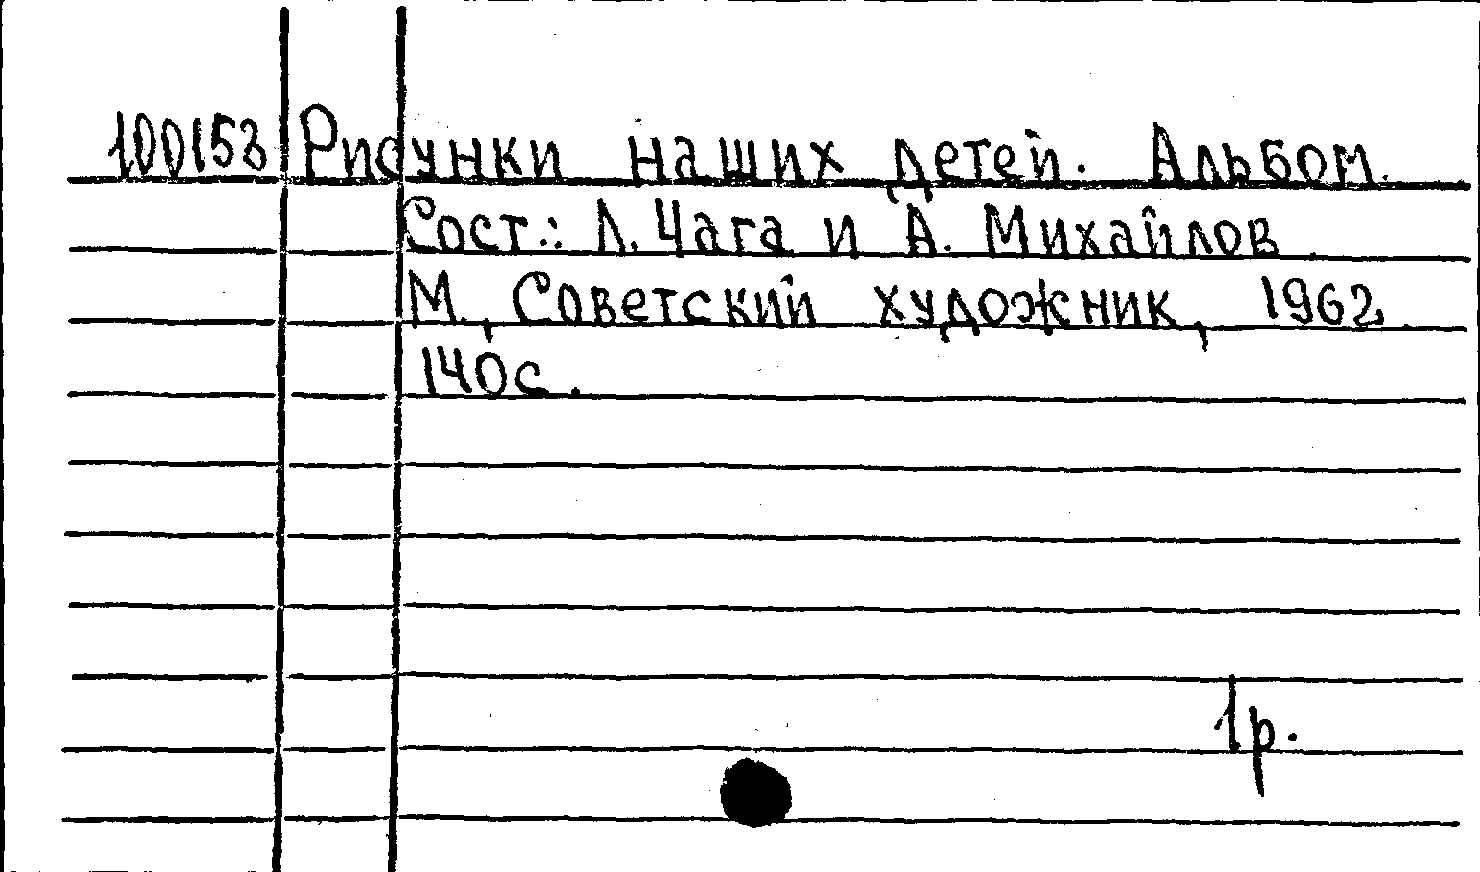 100153 Рисунки наших детей. Альбом.
Сост.: Л. Чага и А. Михайлов.
М., Советский художник, 1962.
140с.
1р.